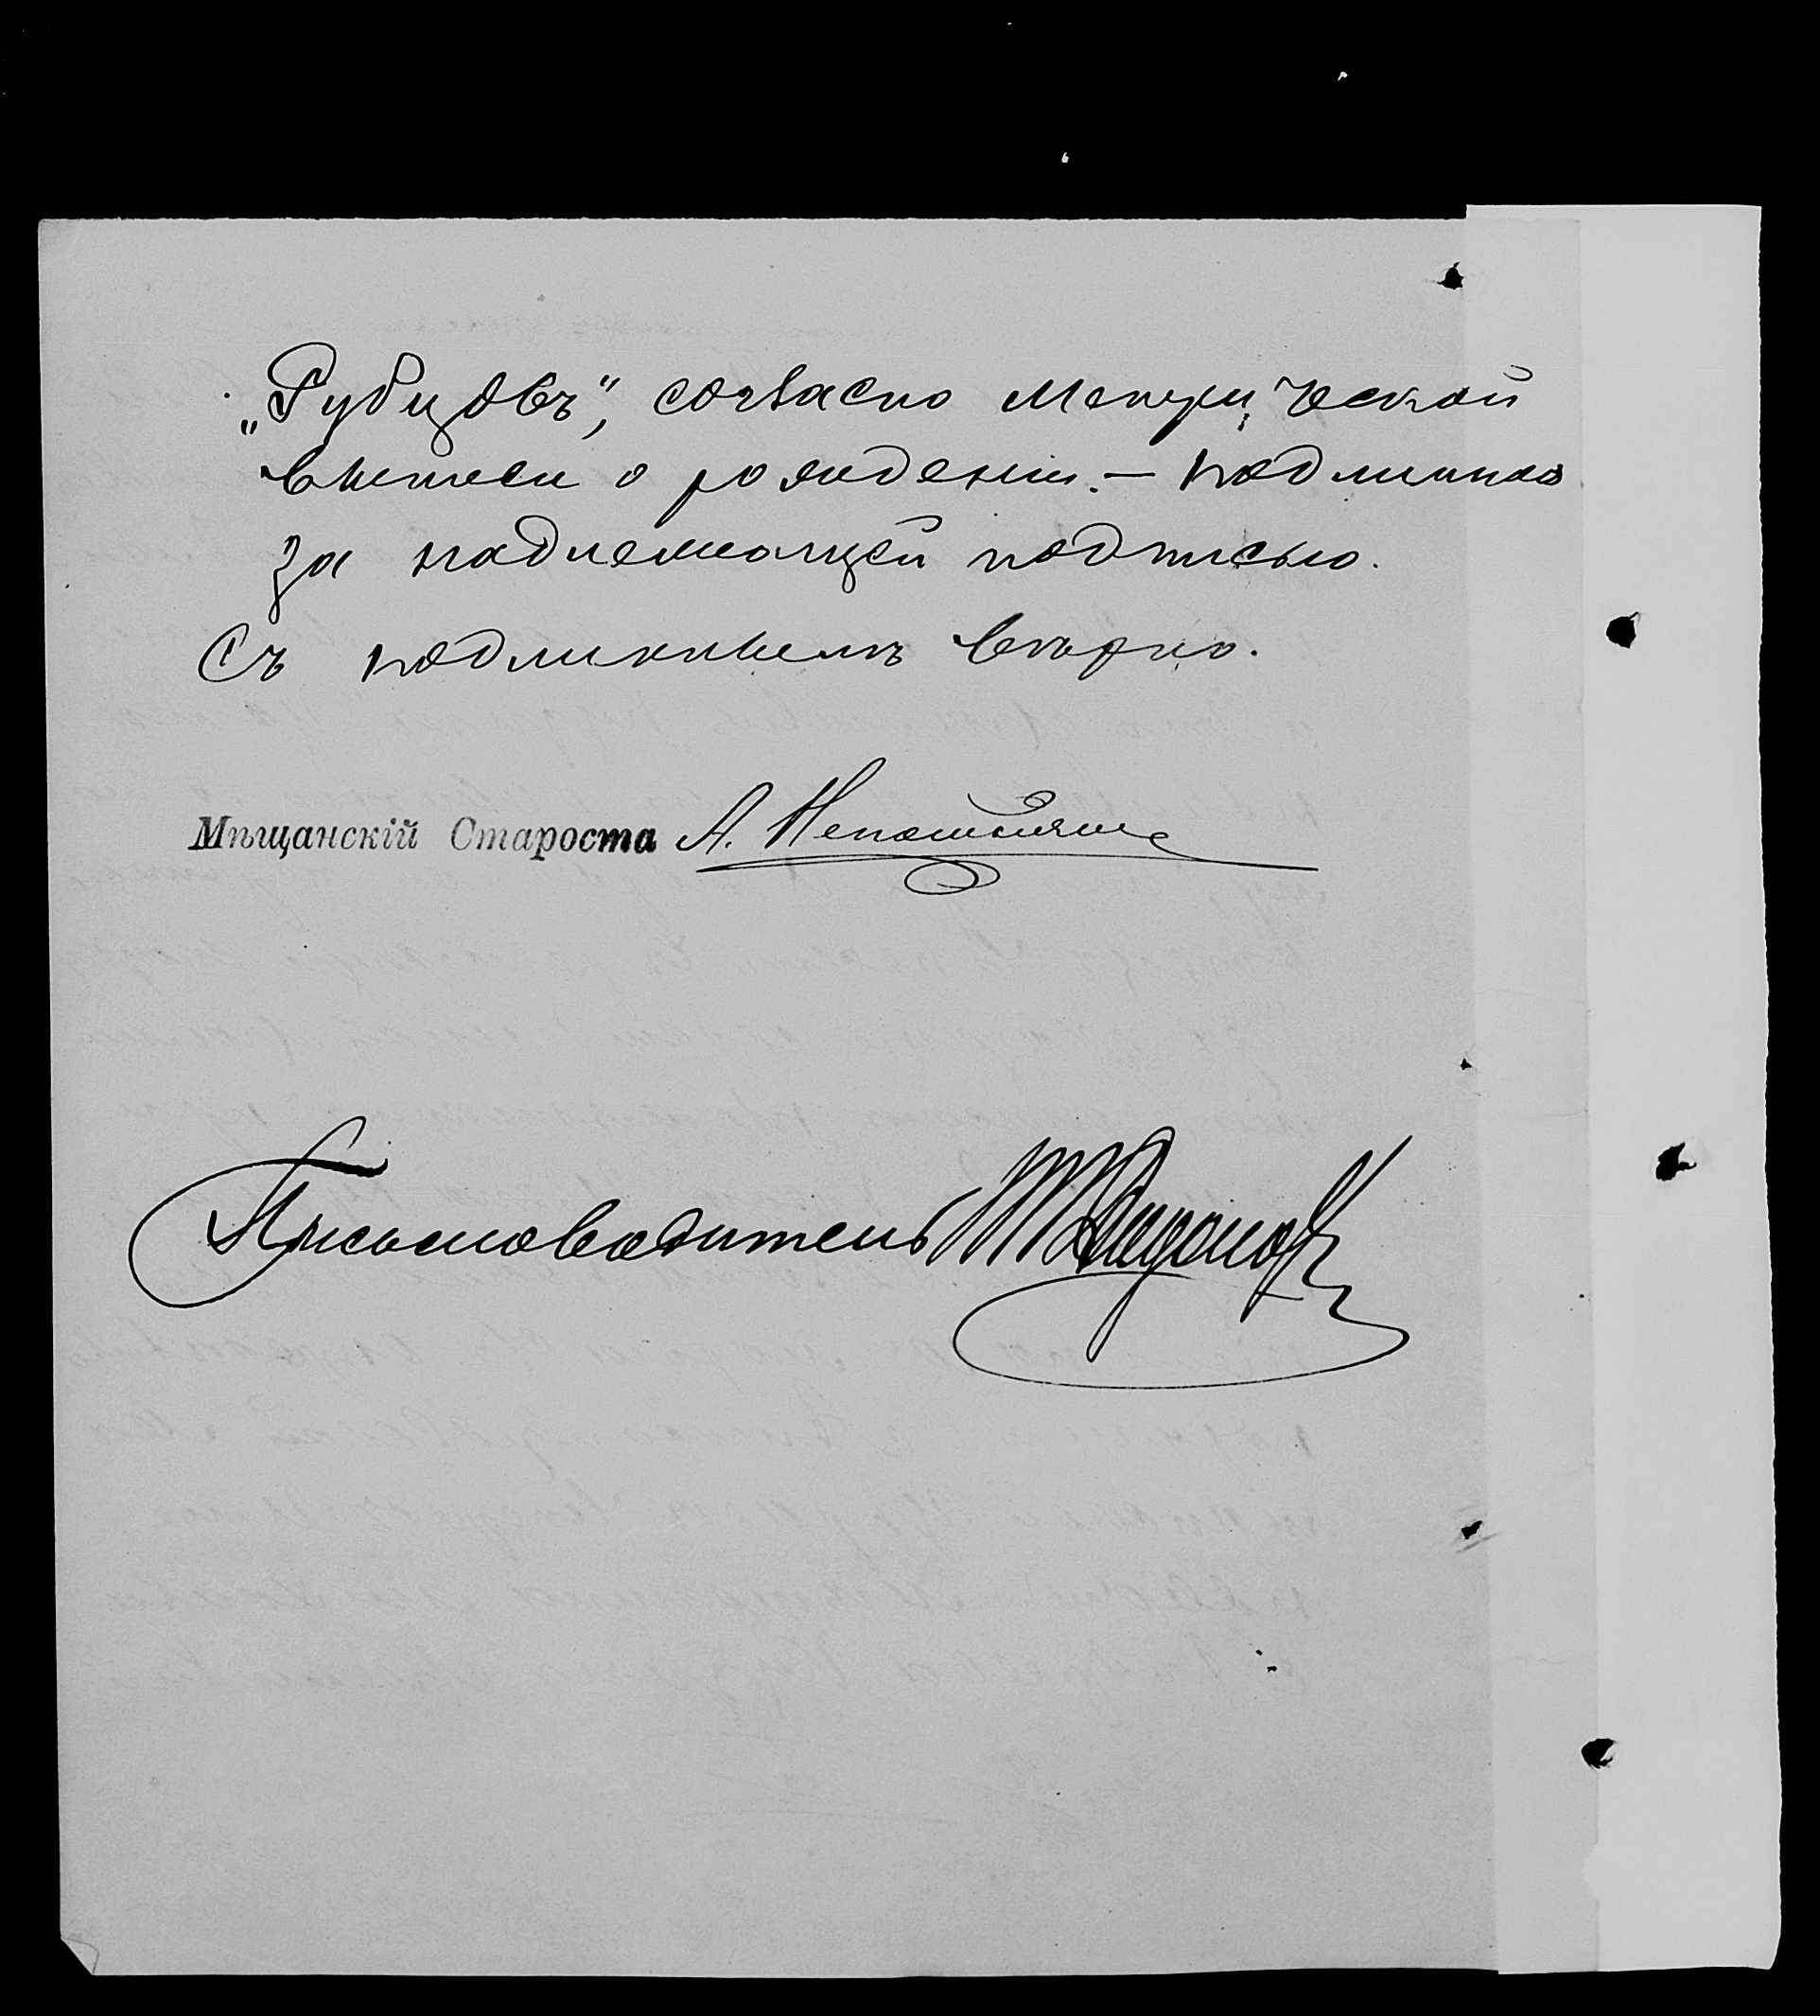 „Рубцовъ“, согласно Метрической
выписи о рожденіи. — Подлинная
за надлежащей подписью.
Съ подлиннымъ вѣрно.
Мѣщанскій Староста А.
Письмоводитель